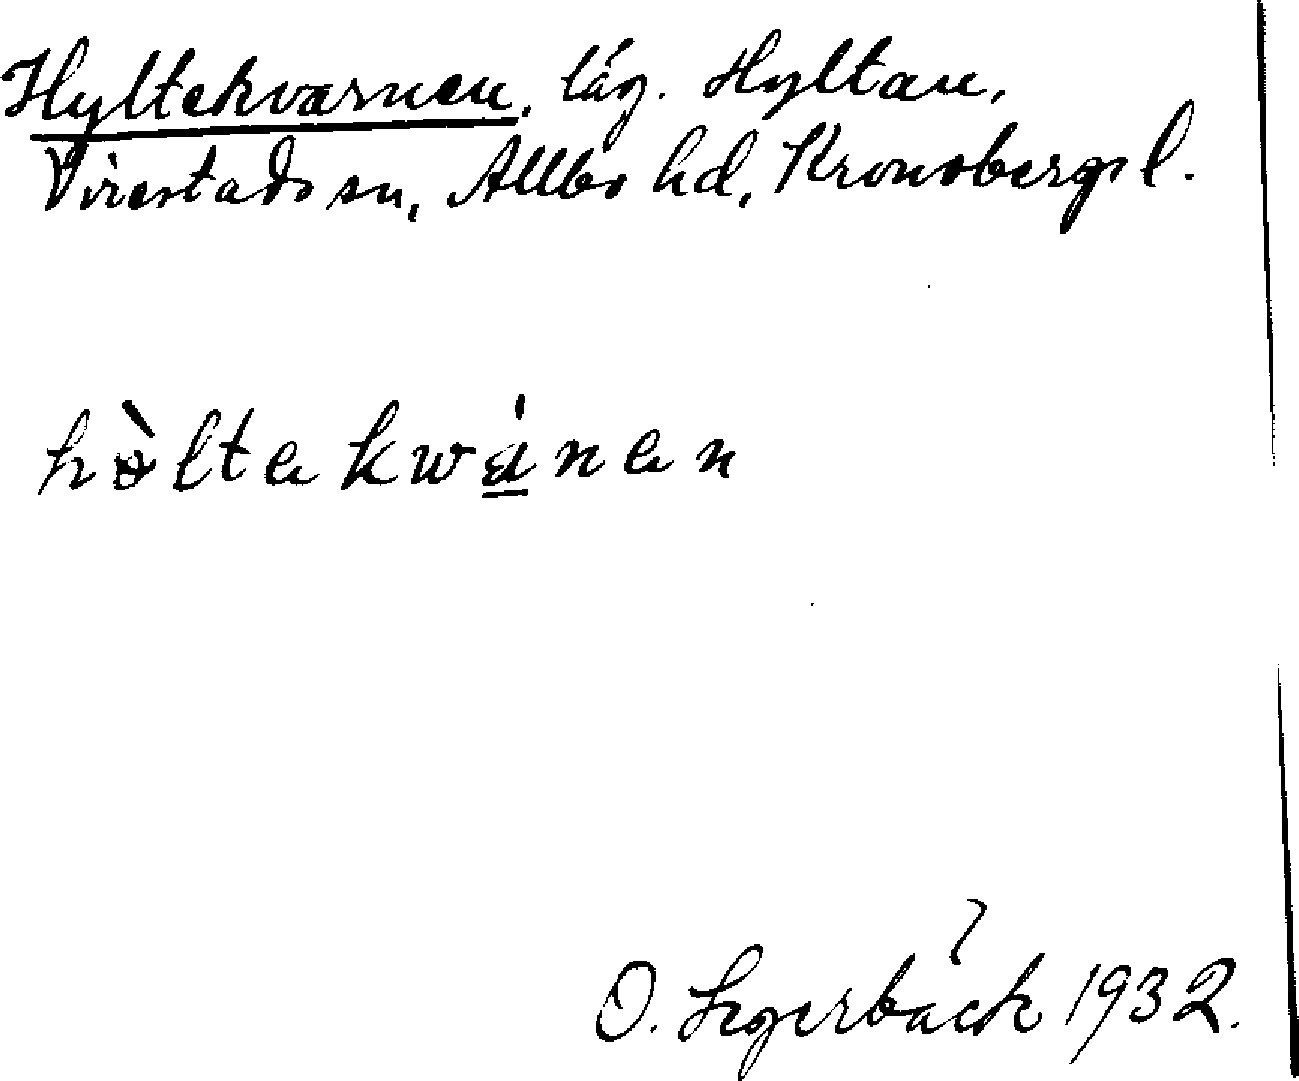 Hyltekvarnen, läg. Hyltan,
Virestads sn, Allbo hd, Kronobergs l.
hòltekwánen
O. Segerbäck 1932.